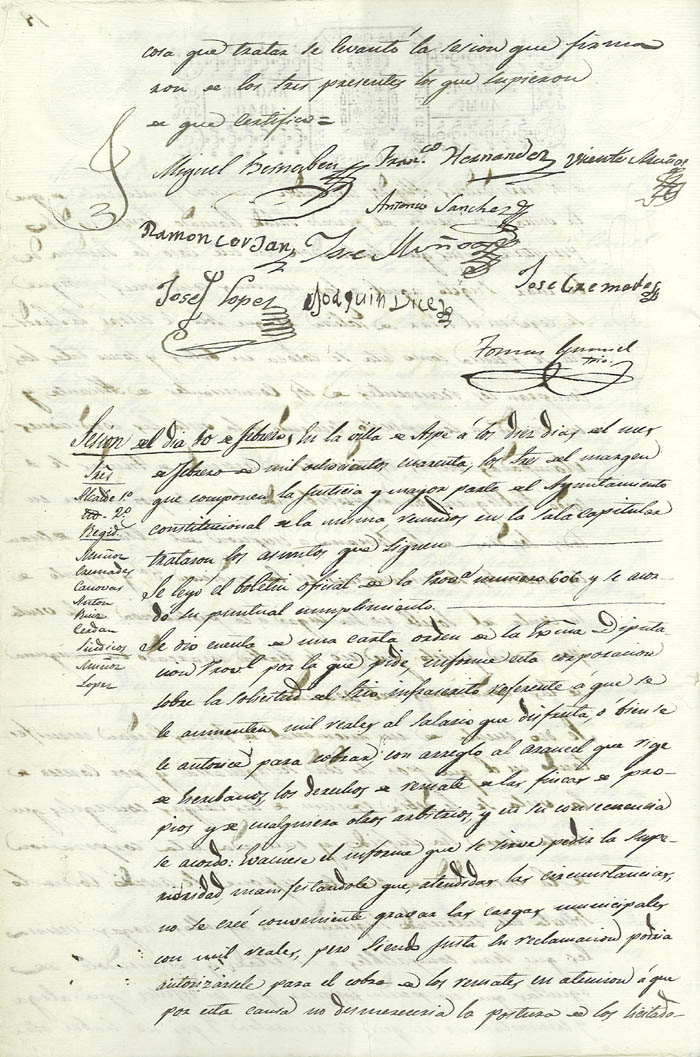 cosa que tratar se levantó la sesion que firma
ron de los Sres presentes los que supieron
de que Certifico =
Miguel Bernabeu Fran.co Hernandez Vicente Muñoz
Antonio Sanchez
Ramon Cerdan Jose Muñoz
Jose Cremades
Jose Lopez Joaquin Dicez
Tomas Gumiel
Srio.
Sesion del dia 10 de febrero, En la villa de Aspe á los diez dias del mes
Sres
de febrero de mil ochocientos cuarenta, los Sres del margen
Alcalde 1º
que componen la Justicia y mayor parte del Ayuntamiento
Ydo. 2º
Regid.
constitucional de la misma reunidos en la Sala capitular
Muñoz
trataron los asuntos que siguen
Cremades
Canovas
Se leyó el boletin oficial de la Provª numero 606 y se acor-
Anton
Ruiz
dó su puntual cumplimiento.
Cerdan
Sindicos
Se dio cuenta de una carta orden de la Exma Diputa
Muñoz
cion Provl por la que pide informe esta corporacion
Lopez
sobre la solicitud del Srio infrascrito referente á que se
le aumenten mil reales al salario que disfruta, ó bien se
le autorice para cobrar, con arreglo al arancel que rige
de Escribanos, los derechos de remate de las fincas de pro-
pios y de cualquiera otros arbitrios, y en su consecuencia
se acordó: Evacúese el informe que se sirve pedir la Supe-
rioridad, manifestandole que, atendidas las circunstancias,
no se creé conveniente gravar las cargas municipales
con mil reales, pero siendo justa su reclamacion podria
autorizársele para el cobro de los remates en atencion á que
por esta causa no desmereceria la postura de los licitado-